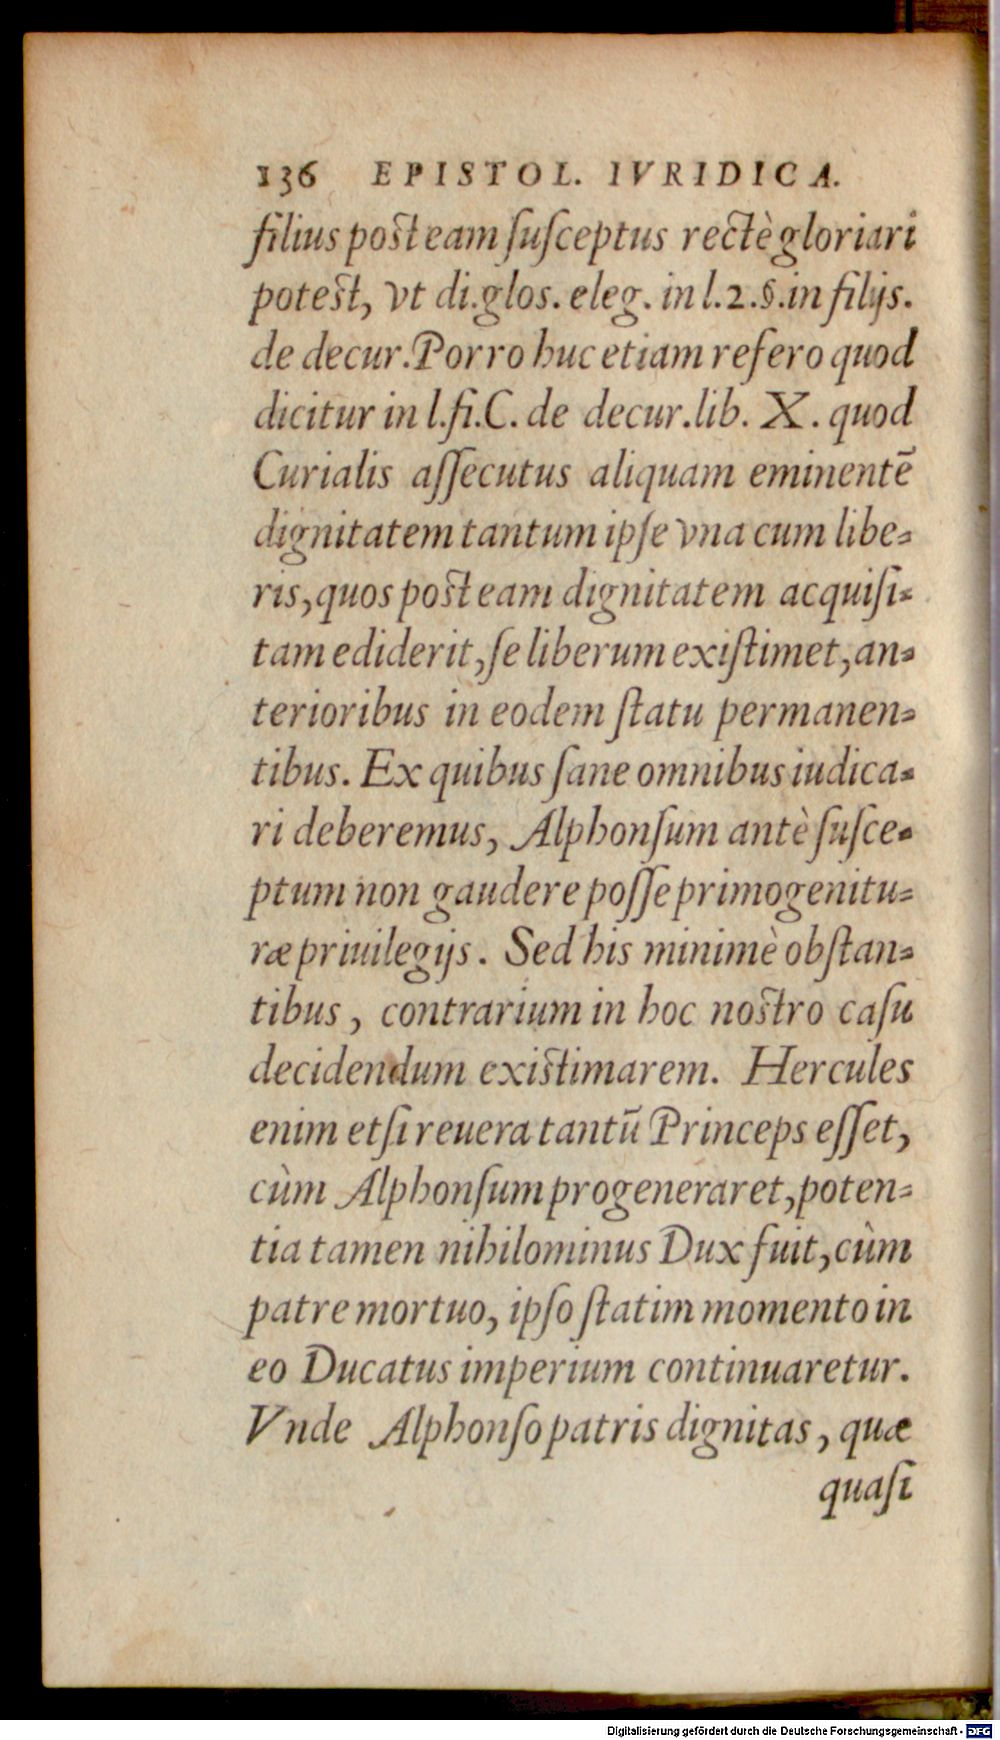 136 EPISTOL. IVRIDICA.
filius post eam ſuſceptus rectè gloriari
potest, vt di.glos. eleg. in l.2.§.in filijs.
de decur. Porro huc etiam refero quod
dicitur in l.fi.C. de decur.lib. X. quod
Curialis aſſecutus aliquam eminentē
dignitatem tantum ipſe vna cum libe-
ris, quos post eam dignitatem acquiſi-
tam ediderit, ſe liberum exiſtimet, an-
terioribus in eodem ſtatu permanen-
tibus. Ex quibus ſane omnibus iudica-
ri deberemus, Alphonſum antè ſuſce-
ptum non gaudere poſſe primogenitu-
ræ priuilegijs. Sed his minimè obſtan-
tibus, contrarium in hoc nostro caſu
decidendum existimarem. Hercules
enim etſi reuera tantū Princeps eſſet,
cùm Alphonſum progeneraret, poten-
tia tamen nihilominus Dux fuit, cùm
patre mortuo, ipſo ſtatim momento in
eo Ducatus imperium continuaretur.
Vnde Alphonſo patris dignitas, quæ
quaſi
Digitalisierung gefördert durch die Deutsche Forschungsgemeinschaft - DFG